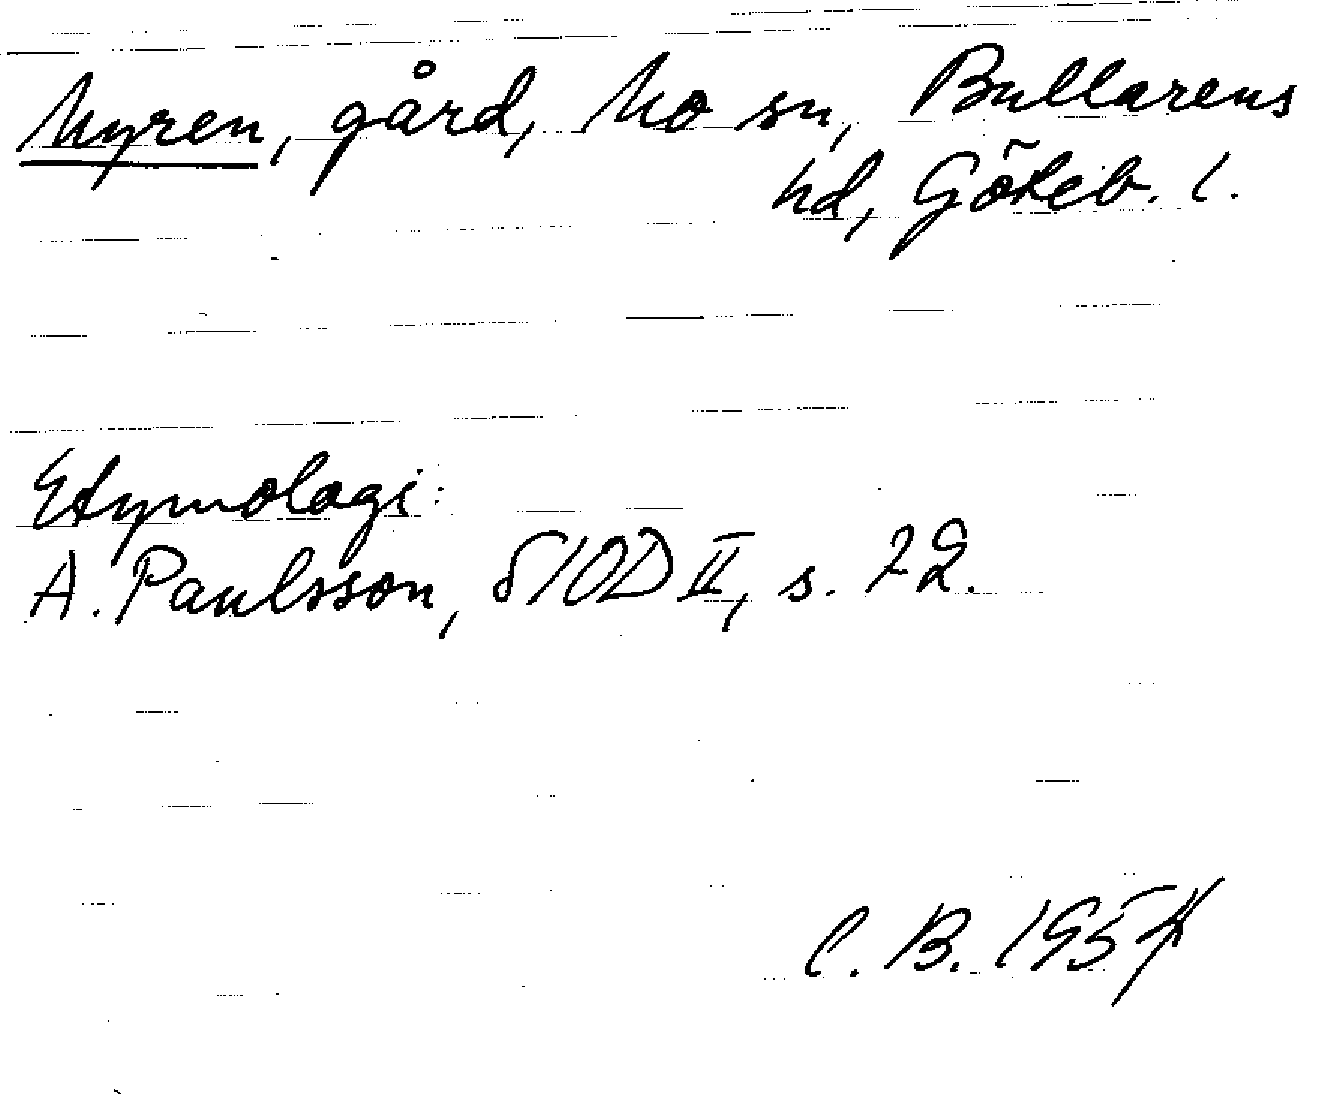 Myren, gård, Mo sn, Bullarens
hd, Göteb. l.
Etymologi:
A. Paulsson, SIOD II, s. 72.
C. B. 1954